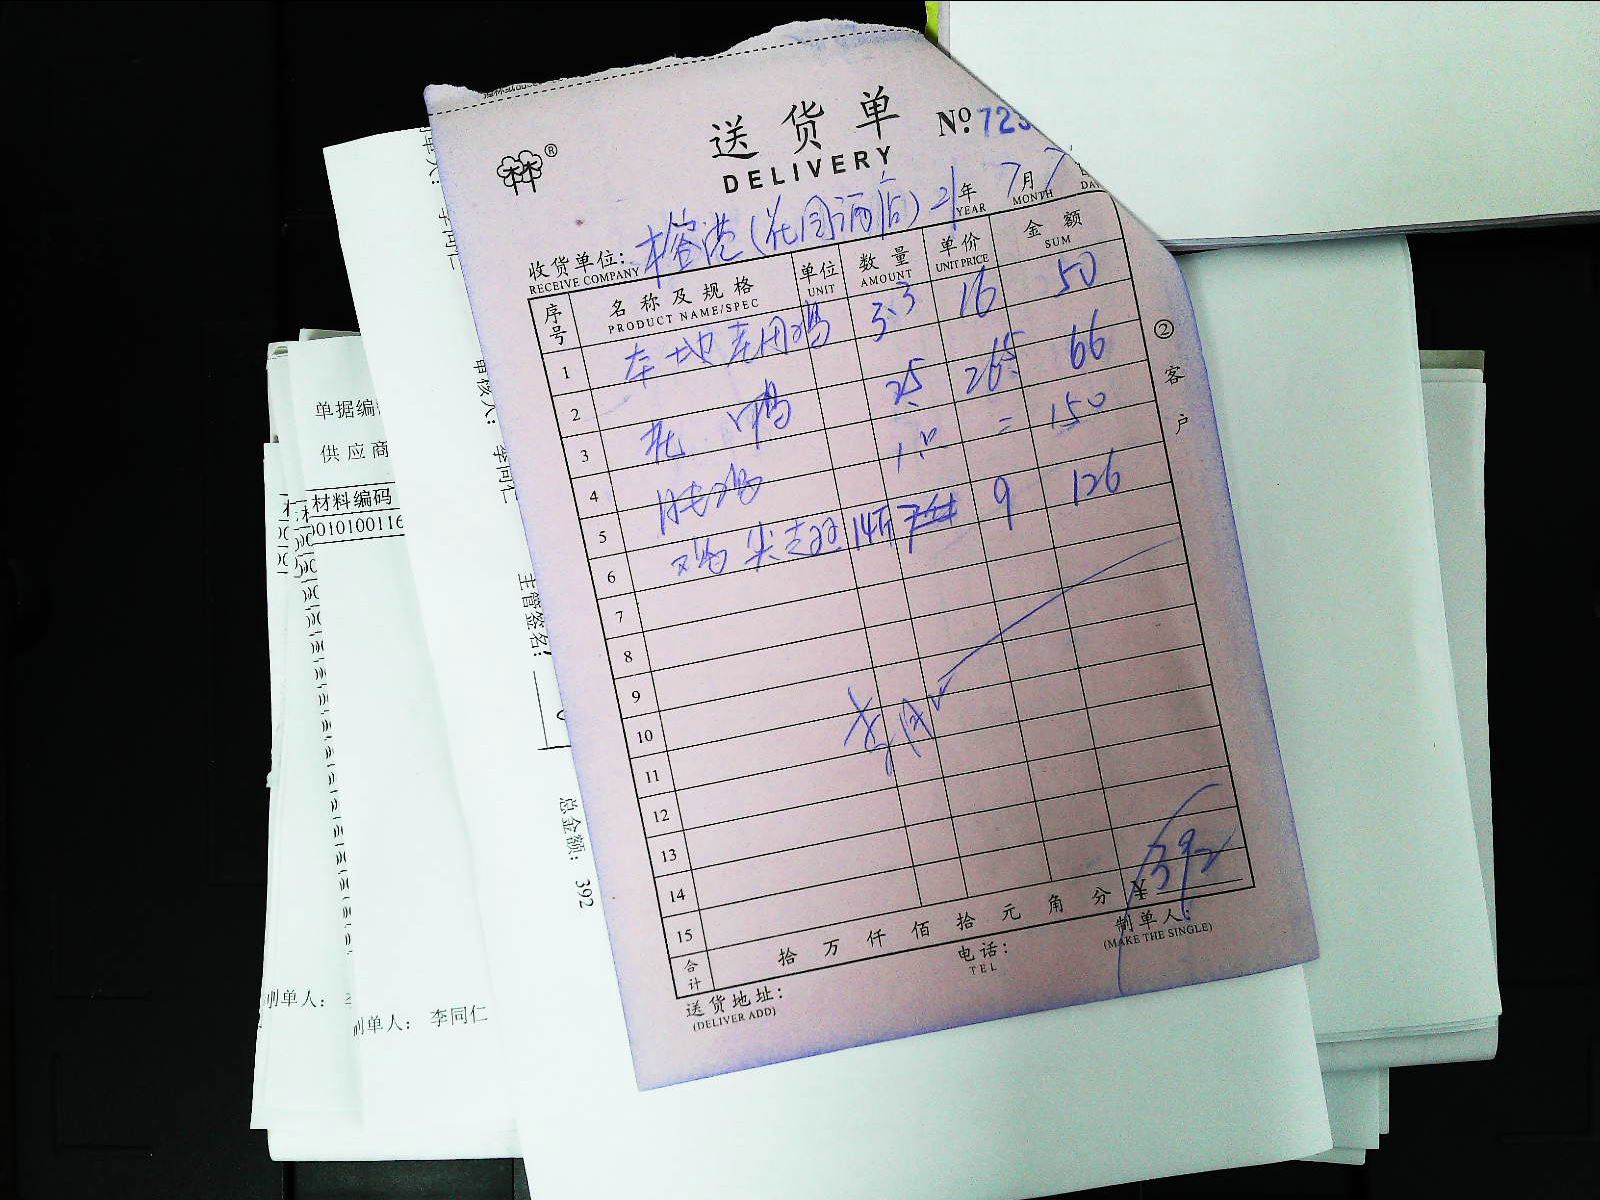 送货单
№ 723
DELIVERY
收货单位: 榕港(花园酒店) 21年 7月 7
RECEIVE COMPANY YEAR MONTH DA
序号 名称及规格 单位 数量 单价 金额
PRODUCT NAME/SPEC UNIT AMOUNT UNIT PRICE SUM
1 本地老母鸡 3.3 16 50
2 2.5 26.5 66
3 鸡 = 150
4
5 鸡尖 14斤 9 126
6
7
8
9
10
11
12
13
14
15
合计 拾 万 仟 佰 拾 元 角 分 ¥ 392
送货地址:
(DELIVER ADD)
电话:
TEL
制单人:
(MAKE THE SINGLE)
② 客户
单据编
供应商
材料编码
0010100116
制单人: 李同仁
审核人: 李同仁
主管签名:
总金额: 392
制单人: